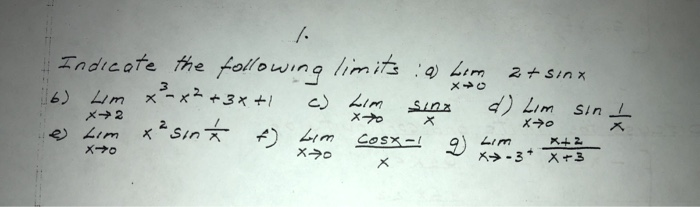 1.
Indicate the following limits : a) Lim x→0 2 + sin x
b) Lim x→2 x³ - x² + 3x + 1 c) Lim x→0 sinx/x d) Lim x→0 sin 1/x
e) Lim x→0 x² sin 1/x f) Lim x→0 cosx-1/x g) Lim x→-3⁺ x+2/x+3